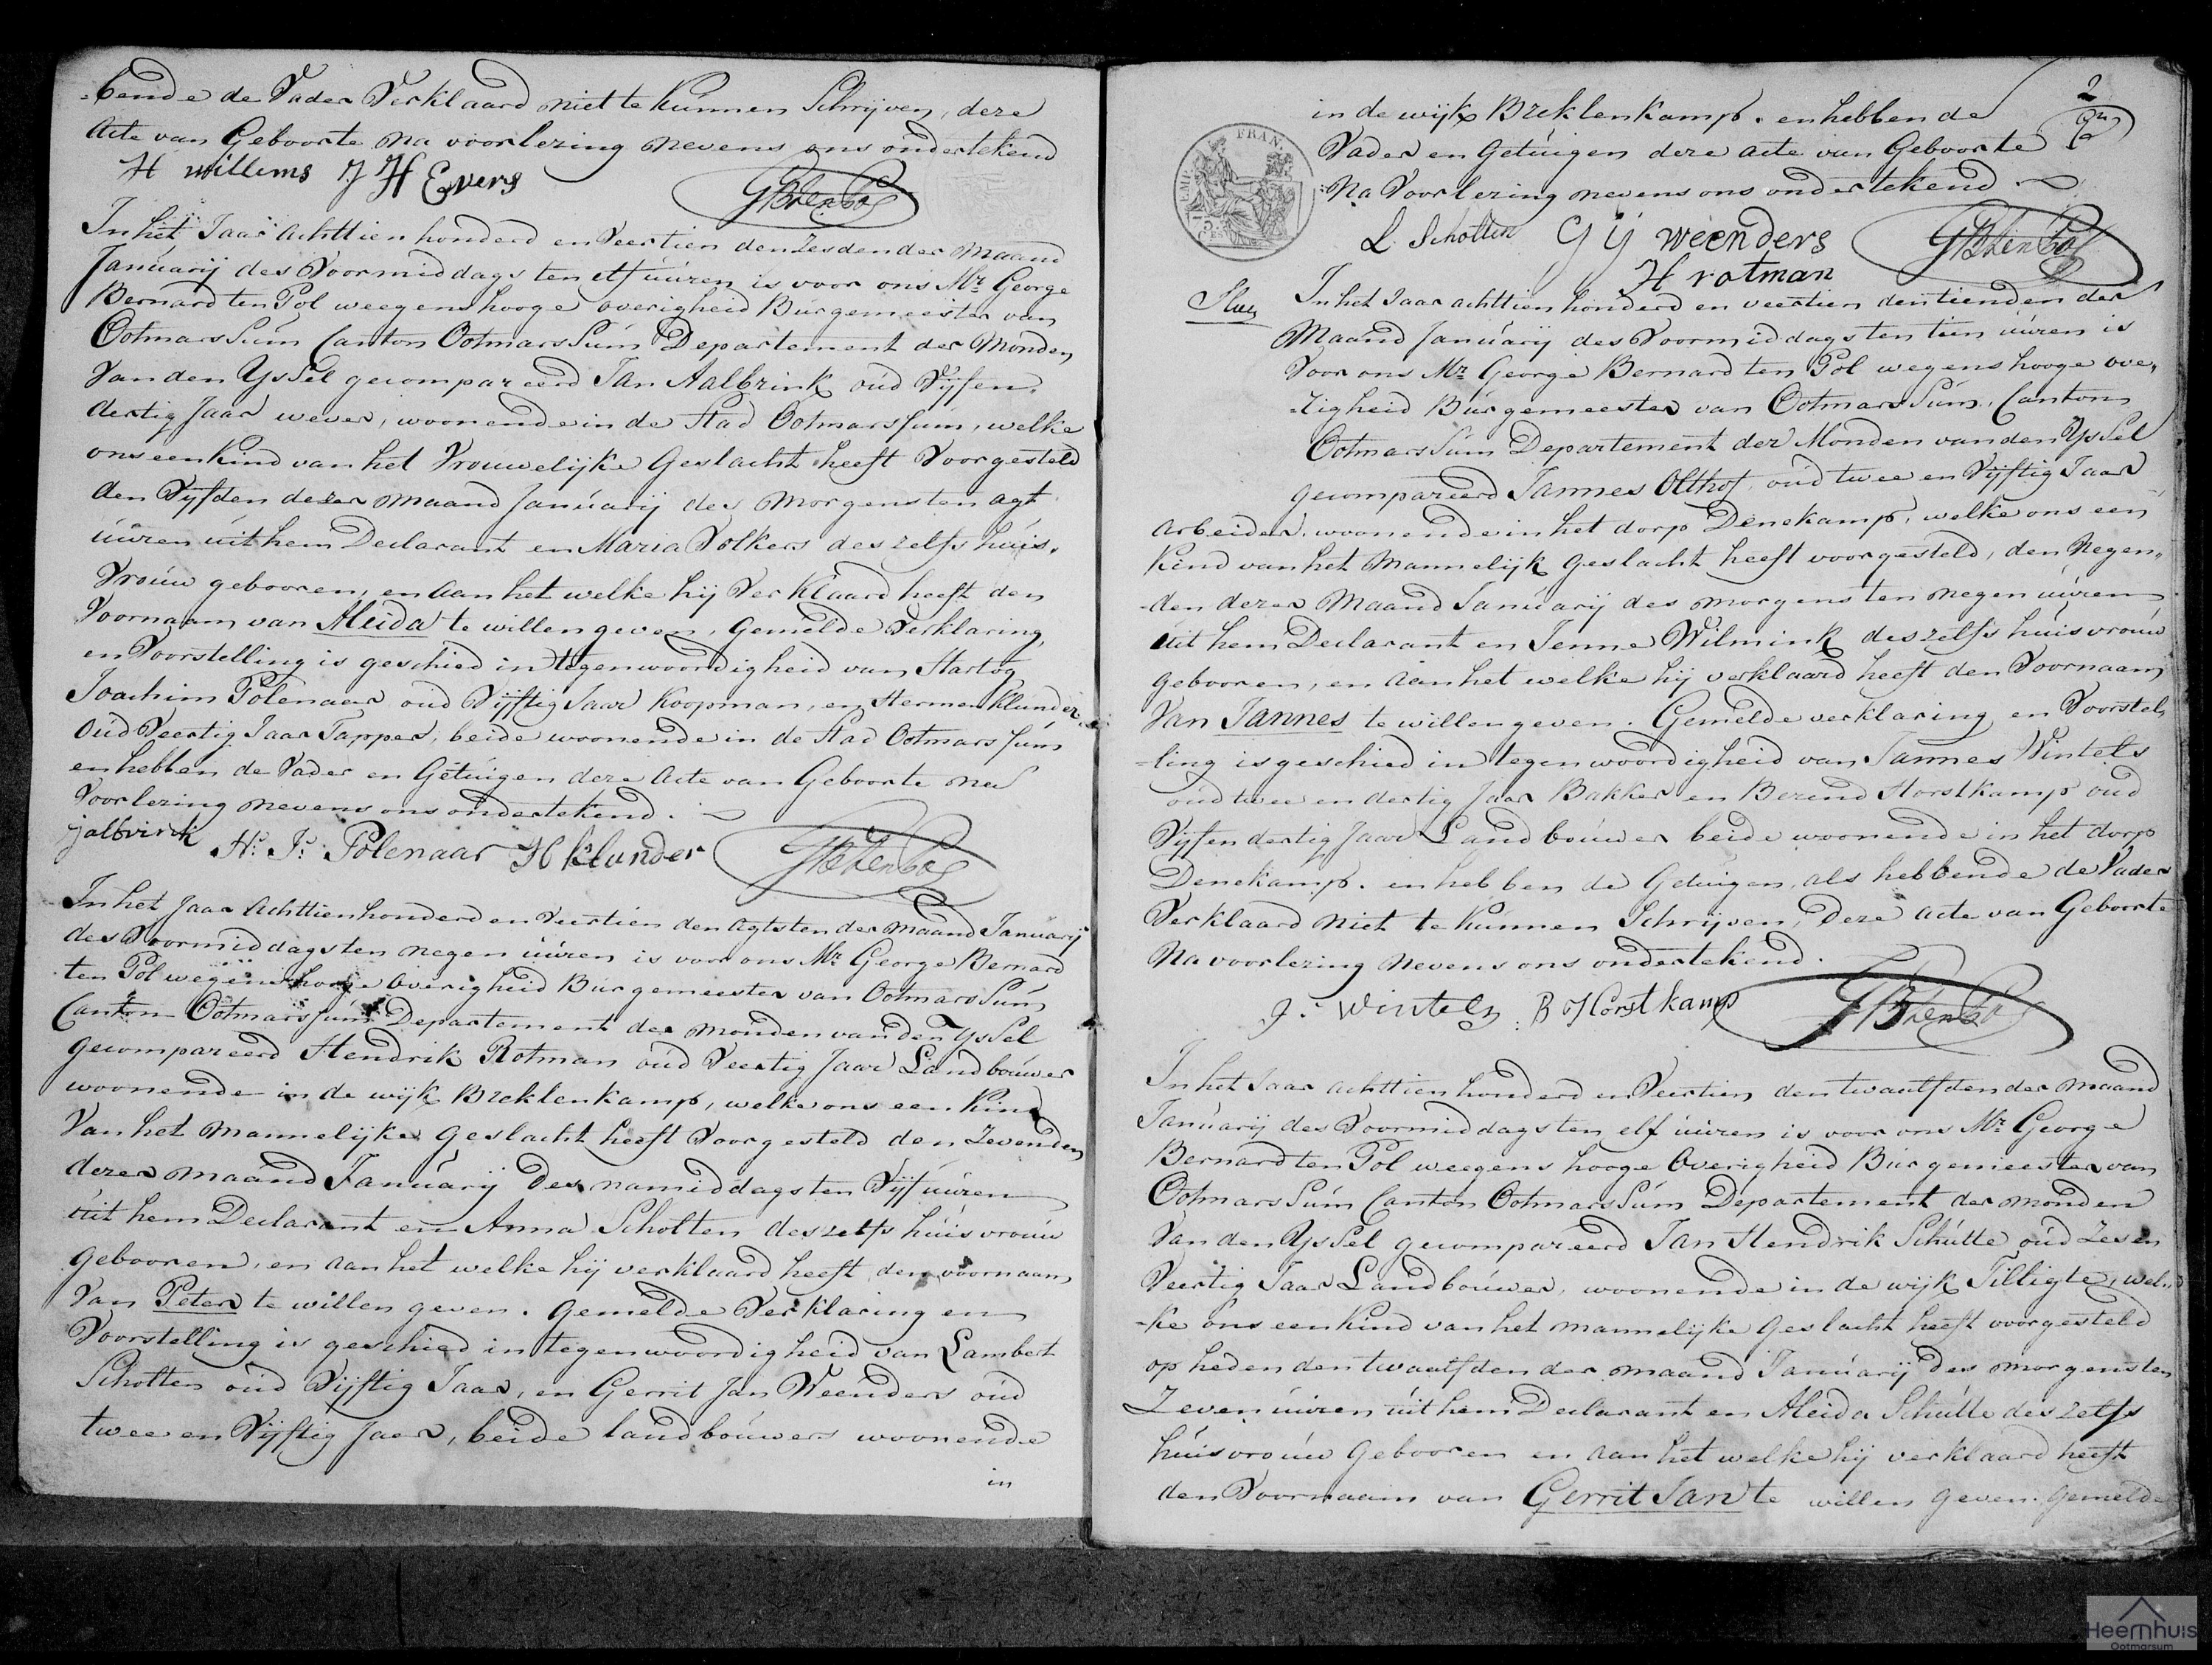 -bende de Vader Verklaard niet te kunnen Schrijven, deze
Acte van Geboorte na voorlezing nevens ons ondertekend
H willems J H Evers GBtenPol
In het Jaar Achttien honderd en Veertien den Zesden der Maand
Januarij des Voormiddags ten elf uuren is voor ons Mr. George
Bernard ten Pol weegens hooge overigheid Burgemeester van
OotmarsSum Canton OotmarsSum Departement der Monden
Van den YsSel gecompareerd Jan Aalbrink oud Vijf en
dertig Jaar wever, woonende in de Stad Ootmarssum, welke
ons een kind van het Vrouwelijke Geslacht heeft Voorgesteld
den Vijfden dezer maand Januarij des morgens ten agt
uuren uit hem Declarant en Maria Volkers des zelfs huis-
Vrouw gebooren, en aan het welke hij Verklaard heeft den
Voornaam van Aleida te willen geven, Gemelde Verklaring,
en Voorstelling is geschied in tegenwoordigheid van Hartog
Joachim Polenaar oud Vijftig Jaar Koopman, en Hermen Klunder
Oud Veertig Jaar Tapper, beide woonende in de Stad Ootmarssum
en hebben de Vader en Getuigen deze Acte van Geboorte na
Voorlezing nevens ons ondertekend.
jalbrink H: J: Polenaar H klunder GBtenPol
In het Jaar Achttien honderd en Veertien den Agtsten der maand Januarij
des Voormiddags ten negen uuren is voor ons Mr George Bernard
ten Pol wegens hooge Overigheid Burgemeester van OotmarsSum
Canton Ootmarssum Departement der monden van den YsSel
gecompareerd Hendrik Rotman oud Veertig Jaar Landbouwer
woonende in de wijk Breklenkamp, welke ons een Kind
Van het mannelijke Geslacht heeft Voorgesteld den Zevenden
dezer maand Januarij des namiddags ten Vijf uuren
uit hem Declarant en Anna Scholten deszelfs huisvrouw
gebooren, en aan het welke hij verklaard heeft den voornaam
Van Peter te willen geven. gemelde Verklaring en
Voorstelling is geschied in tegenwoordigheid van Lambert
Scholten oud Vijftig Jaar, en Gerrit Jan Weenders oud
twee en Vijftig Jaar, beide landbouwers woonende
in
2
in de wijk Breklenkamp. en hebben de
Vader en Getuigen deze acte van Geboorte
Na Voorlezing nevens ons ondertekend.
EMP. FRAN.
L. Scholten G IJ weenders GBtenPol
H rotman
In het Jaar achttien honderd en veertien den tienden der
Maand Januarij des Voormiddags ten tien uuren is
Voor ons Mr. George Bernard ten Pol wegens hooge ove-
-righeid Burgemeester van OotmarsSum, Canton
OotmarsSum Departement der Monden van den YsSel
gecompareerd Jannes Olthof oud twee en Vijftig Jaar
arbeider, woonende in het dorp Denekamp, welke ons een
Kind van het Mannelijk Geslacht heeft voorgesteld, den Negen-
-den dezer Maand Januarij des morgens ten negen uuren
uit hem Declarant en Jenne Wilmink des zelfs huisvrouw
gebooren, en aan het welke hij verklaard heeft den Voornaam
Van Jannes te willen geven. Gemelde verklaring en Voorstel-
-ling is geschied in tegenwoordigheid van Jannes Wintels
oud twee en dertig Jaar Bakker en Berend Horstkamp oud
Vijf en dertig Jaar Landbouwer beide woonende in het dorp
Denekamp. en hebben de Getuigen, als hebbende de Vader
Verklaard Niet te kunnen Schrijven, Deze Acte van Geboorte
Na voorlezing Nevens ons ondertekend.
J: Wintels B Horstkamp GBtenPol
In het Jaar achttien honderd en Veertien den twaalfden der maand
Januarij des Voormiddags ten elf uuren is voor ons Mr George
Bernard ten Pol weegens hooge Overigheid Burgemeester van
OotmarsSum Canton OotmarsSum Departement der monden
Van den YsSel gecompareerd Jan Hendrik Schutte oud Zeven
Veertig Jaar Landbouwer, woonende in de wijk Tilligte, wel-
-ke ons een Kind van het mannelijke Geslacht heeft voorgesteld
op heden den twaalfden der maand Januarij des morgens ten
Zeven uuren uit hem Declarant en Aleida Schutte des zelfs
huisvrouw gebooren en aan het welke hij verklaard heeft
den Voornaam van Gerrit Jan te willen geven. Gemelde
Heemhuis
Ootmarsum